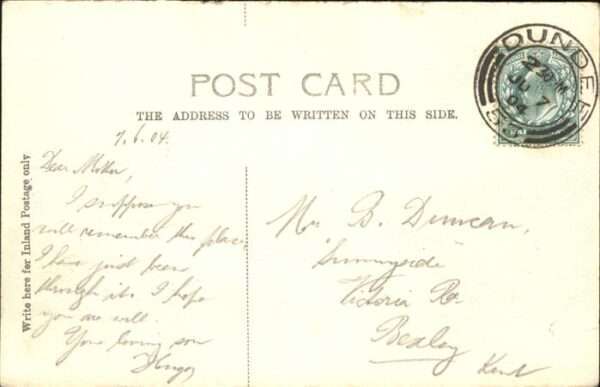 POST CARD
THE ADDRESS TO BE WRITTEN ON THIS SIDE.
Write here for Inland Postage only
DUNDEE
2 30 PM
JU 7
04
7.6.04.
Dear Mother,
I suppose you
will remember this place,
I have just been
through it. I hope
you are well.
Your loving son
B. Duncan,
Sunnyside
Victoria Rd.
Bexley
Kent